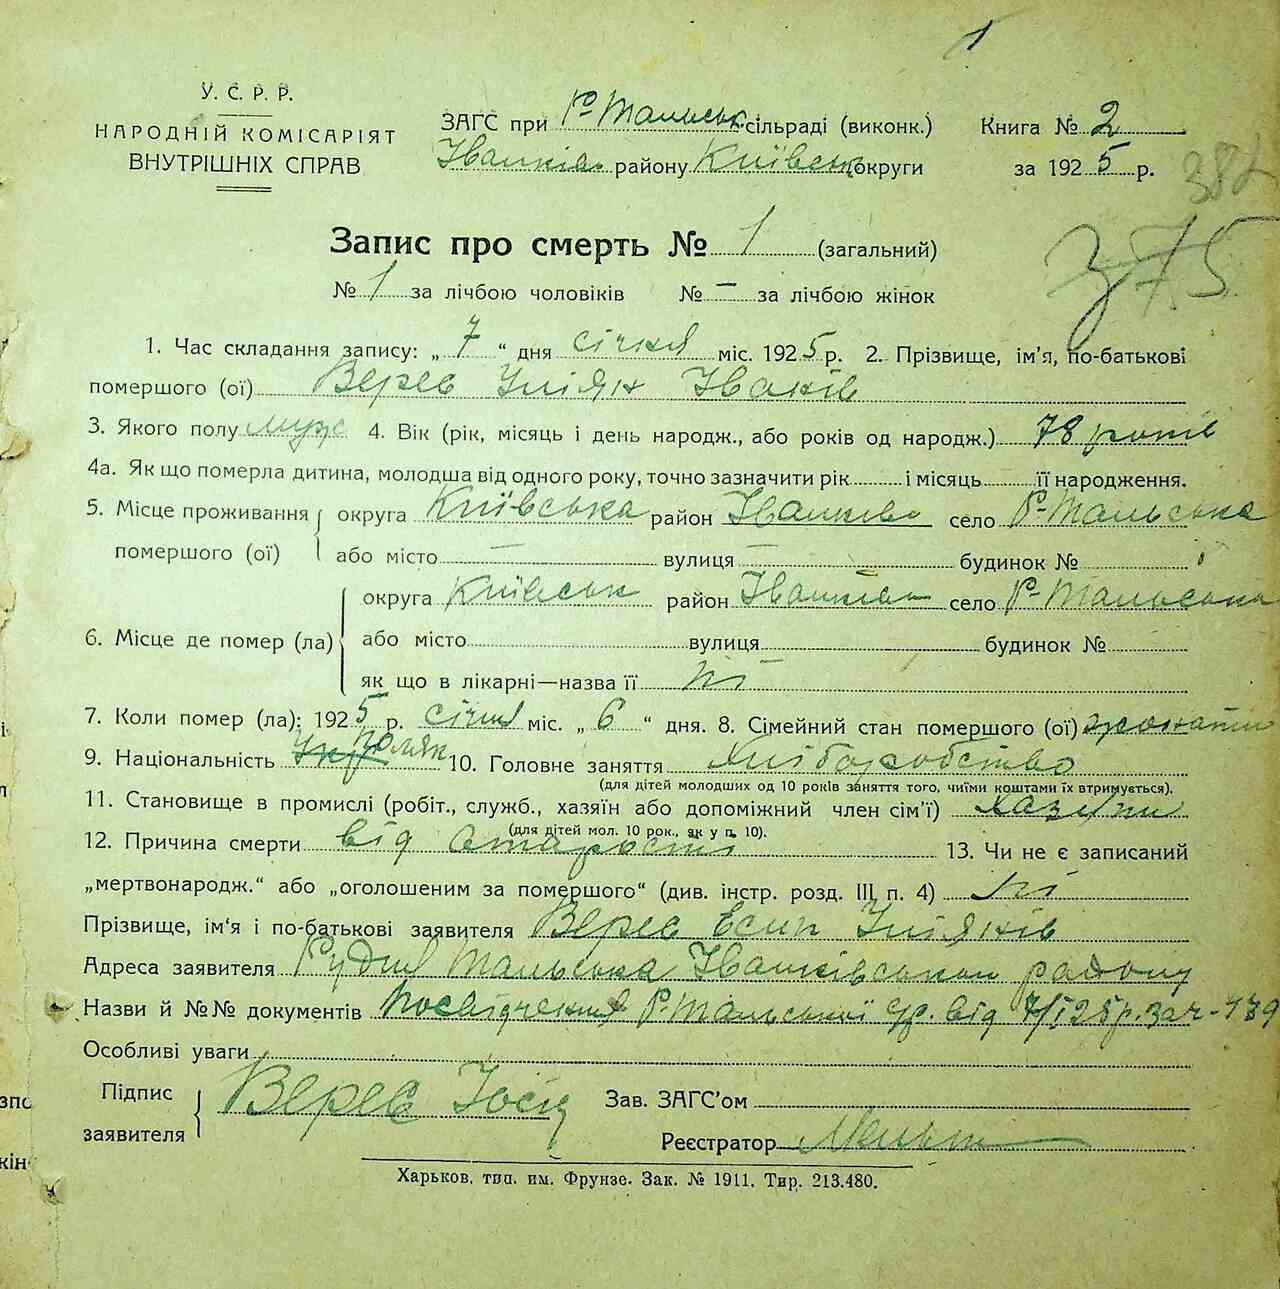 1
У. С. Р. Р.
НАРОДНІЙ КОМІСАРІЯТ
ВНУТРІШНІХ СПРАВ
ЗАГС при Р-Тальськ. сільраді (виконк.)
Іванків району Київськ округи
Книга № 2
за 1925 р.
382
375
Запис про смерть № 1 (загальний)
№ 1 за лічбою чоловіків № — за лічбою жінок
1. Час складання запису: „ 7 “ дня січня міс. 1925 р. 2. Прізвище, ім'я, по-батькові
помершого (ої) Верес Уліян Іванів
3. Якого полу муж 4. Вік (рік, місяць і день народж., або років од народж.) 78 років
4а. Як що померла дитина, молодша від одного року, точно зазначити рік і місяць її народження.
5. Місце проживання помершого (ої) округа Київська район Іванків село Р-Тальська
або місто — вулиця — будинок №
6. Місце де помер (ла) округа Київськ район Іванків село Р-Тальська
або місто вулиця будинок №
як що в лікарні—назва її ні
7. Коли помер (ла): 1925 р. січня міс. „ 6 “ дня. 8. Сімейний стан помершого (ої) жонати
9. Національність Укр поляк 10. Головне заняття Хліборобство
(для дітей молодших од 10 років заняття того, чиїми коштами їх втримується).
11. Становище в промислі (робіт., служб., хазяїн або допоміжний член сім'ї) хазяїн
(для дітей мол. 10 рок., як у п. 10).
12. Причина смерти від старости 13. Чи не є записаний
„мертвонародж.“ або „оголошеним за помершого“ (див. інстр. розд. III п. 4) ні
Прізвище, ім'я і по-батькові заявителя Верес Есип Уліянів
Адреса заявителя Рудня Тальська Іванківського району
Назви й №№ документів Посвідчення Р-Тальської с/р. від 7/I 25 р. за ч-
Особливі уваги
Підпис заявителя Верес Йосип Зав. ЗАГС'ом
Реєстратор
Харьков, тип. им. Фрунзе. Зак. № 1911. Тир. 213.480.